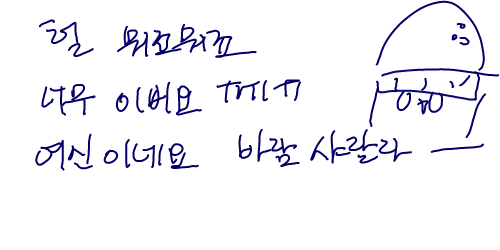 헐 뭐죠뭐죠
너무 이버요 ㅠㅔㅠ
여신이네요 바람 샤랄라